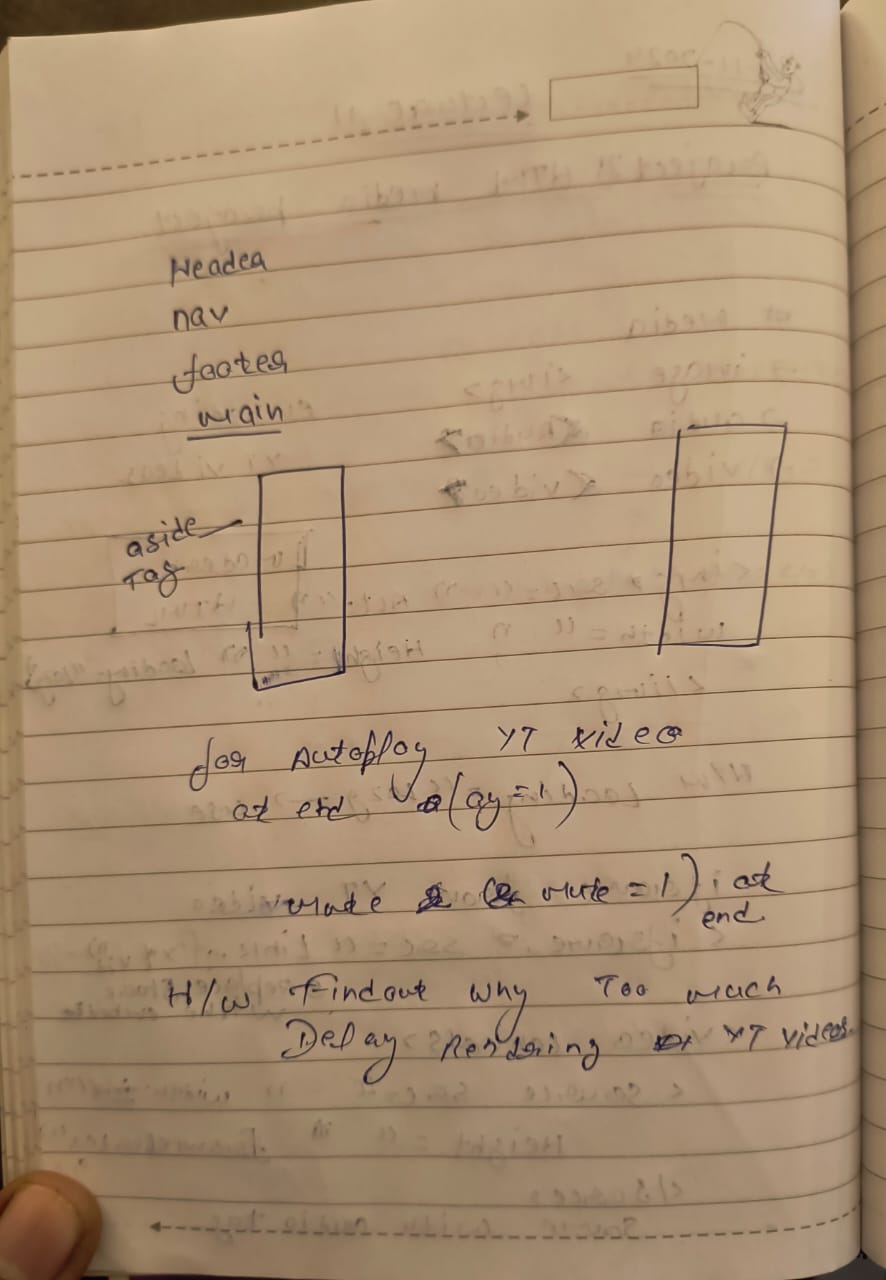 Header
nav
footer
main
aside
Tag
for Autoplay YT video
at end (ay=1)
mute & (& mute = 1) ; at
end
H/w Findout Why Too much
Delay Rendering YT videos